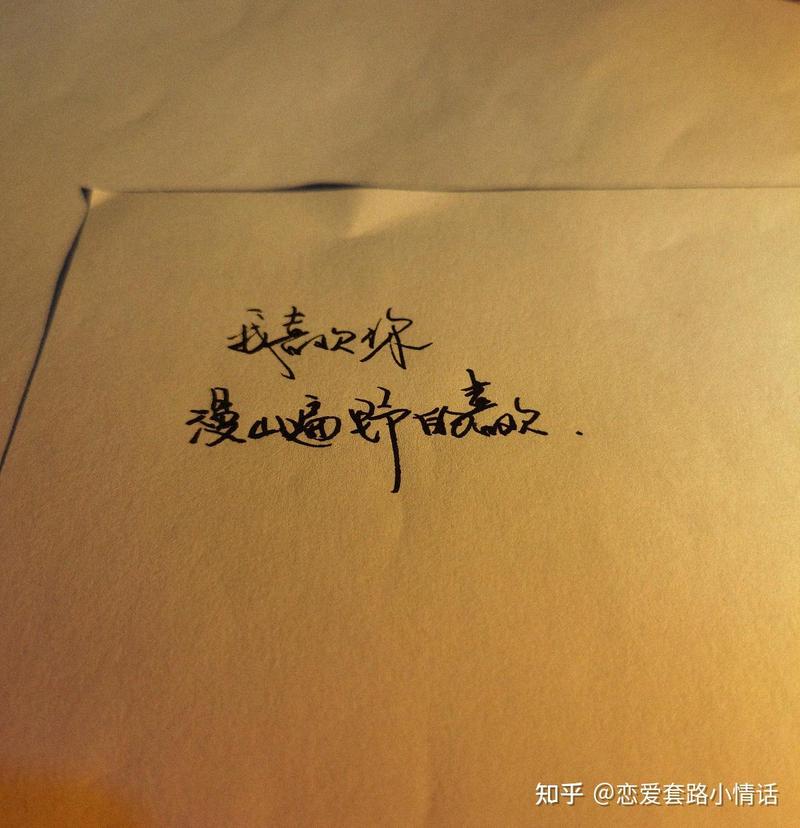 我喜欢你
漫山遍野的喜欢.
知乎 @恋爱套路小情话